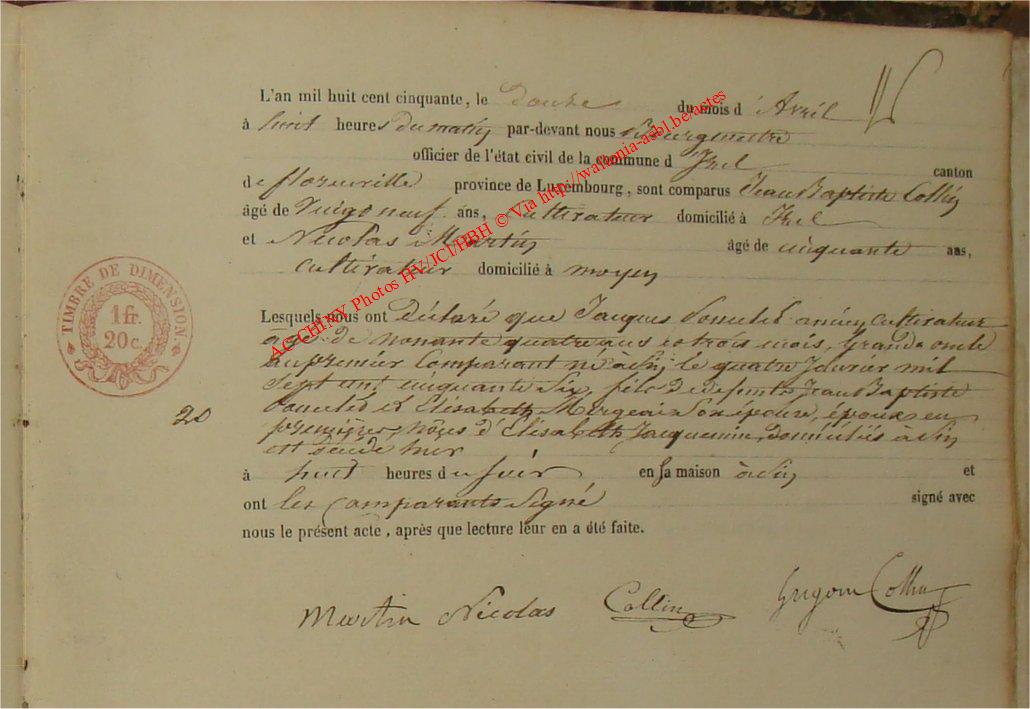 L'an mil huit cent cinquante, le Douze du mois d'Avril
à huit heures du matin par-devant nous Bourgmestre
officier de l'état civil de la commune d'Izel canton
de florenville province de Luxembourg, sont comparus Jean Baptiste Collin
âgé de Vingt neuf ans, cultivateur domicilié à Izel
et Nicolas Martin âgé de cinquante ans,
cultivateur domicilié à moyen
Lesquels nous ont Déclaré que Jacques ancien cultivateur
agé de nonante quatre ans et trois mois, Grand oncle
au premier Comparant né à le quatre Janvier mil
Sept cent cinquante Six, fils de defunts Jean Baptiste
et Elisabeth Son épouse, époux en
premières nôces d'Elisabeth Jacquemin, domiciliés à
est décédé hier
à huit heures du soir en sa maison à et
ont les comparants Signé signé avec
nous le présent acte, après que lecture leur en a été faite.
Martin Nicolas Collin Collin
TIMBRE DE DIMENSION.
1 fr.
20 c.
20
AC CHINY Photos HV/JCI/HBH © Via http://wallonia-asbl.be/actes